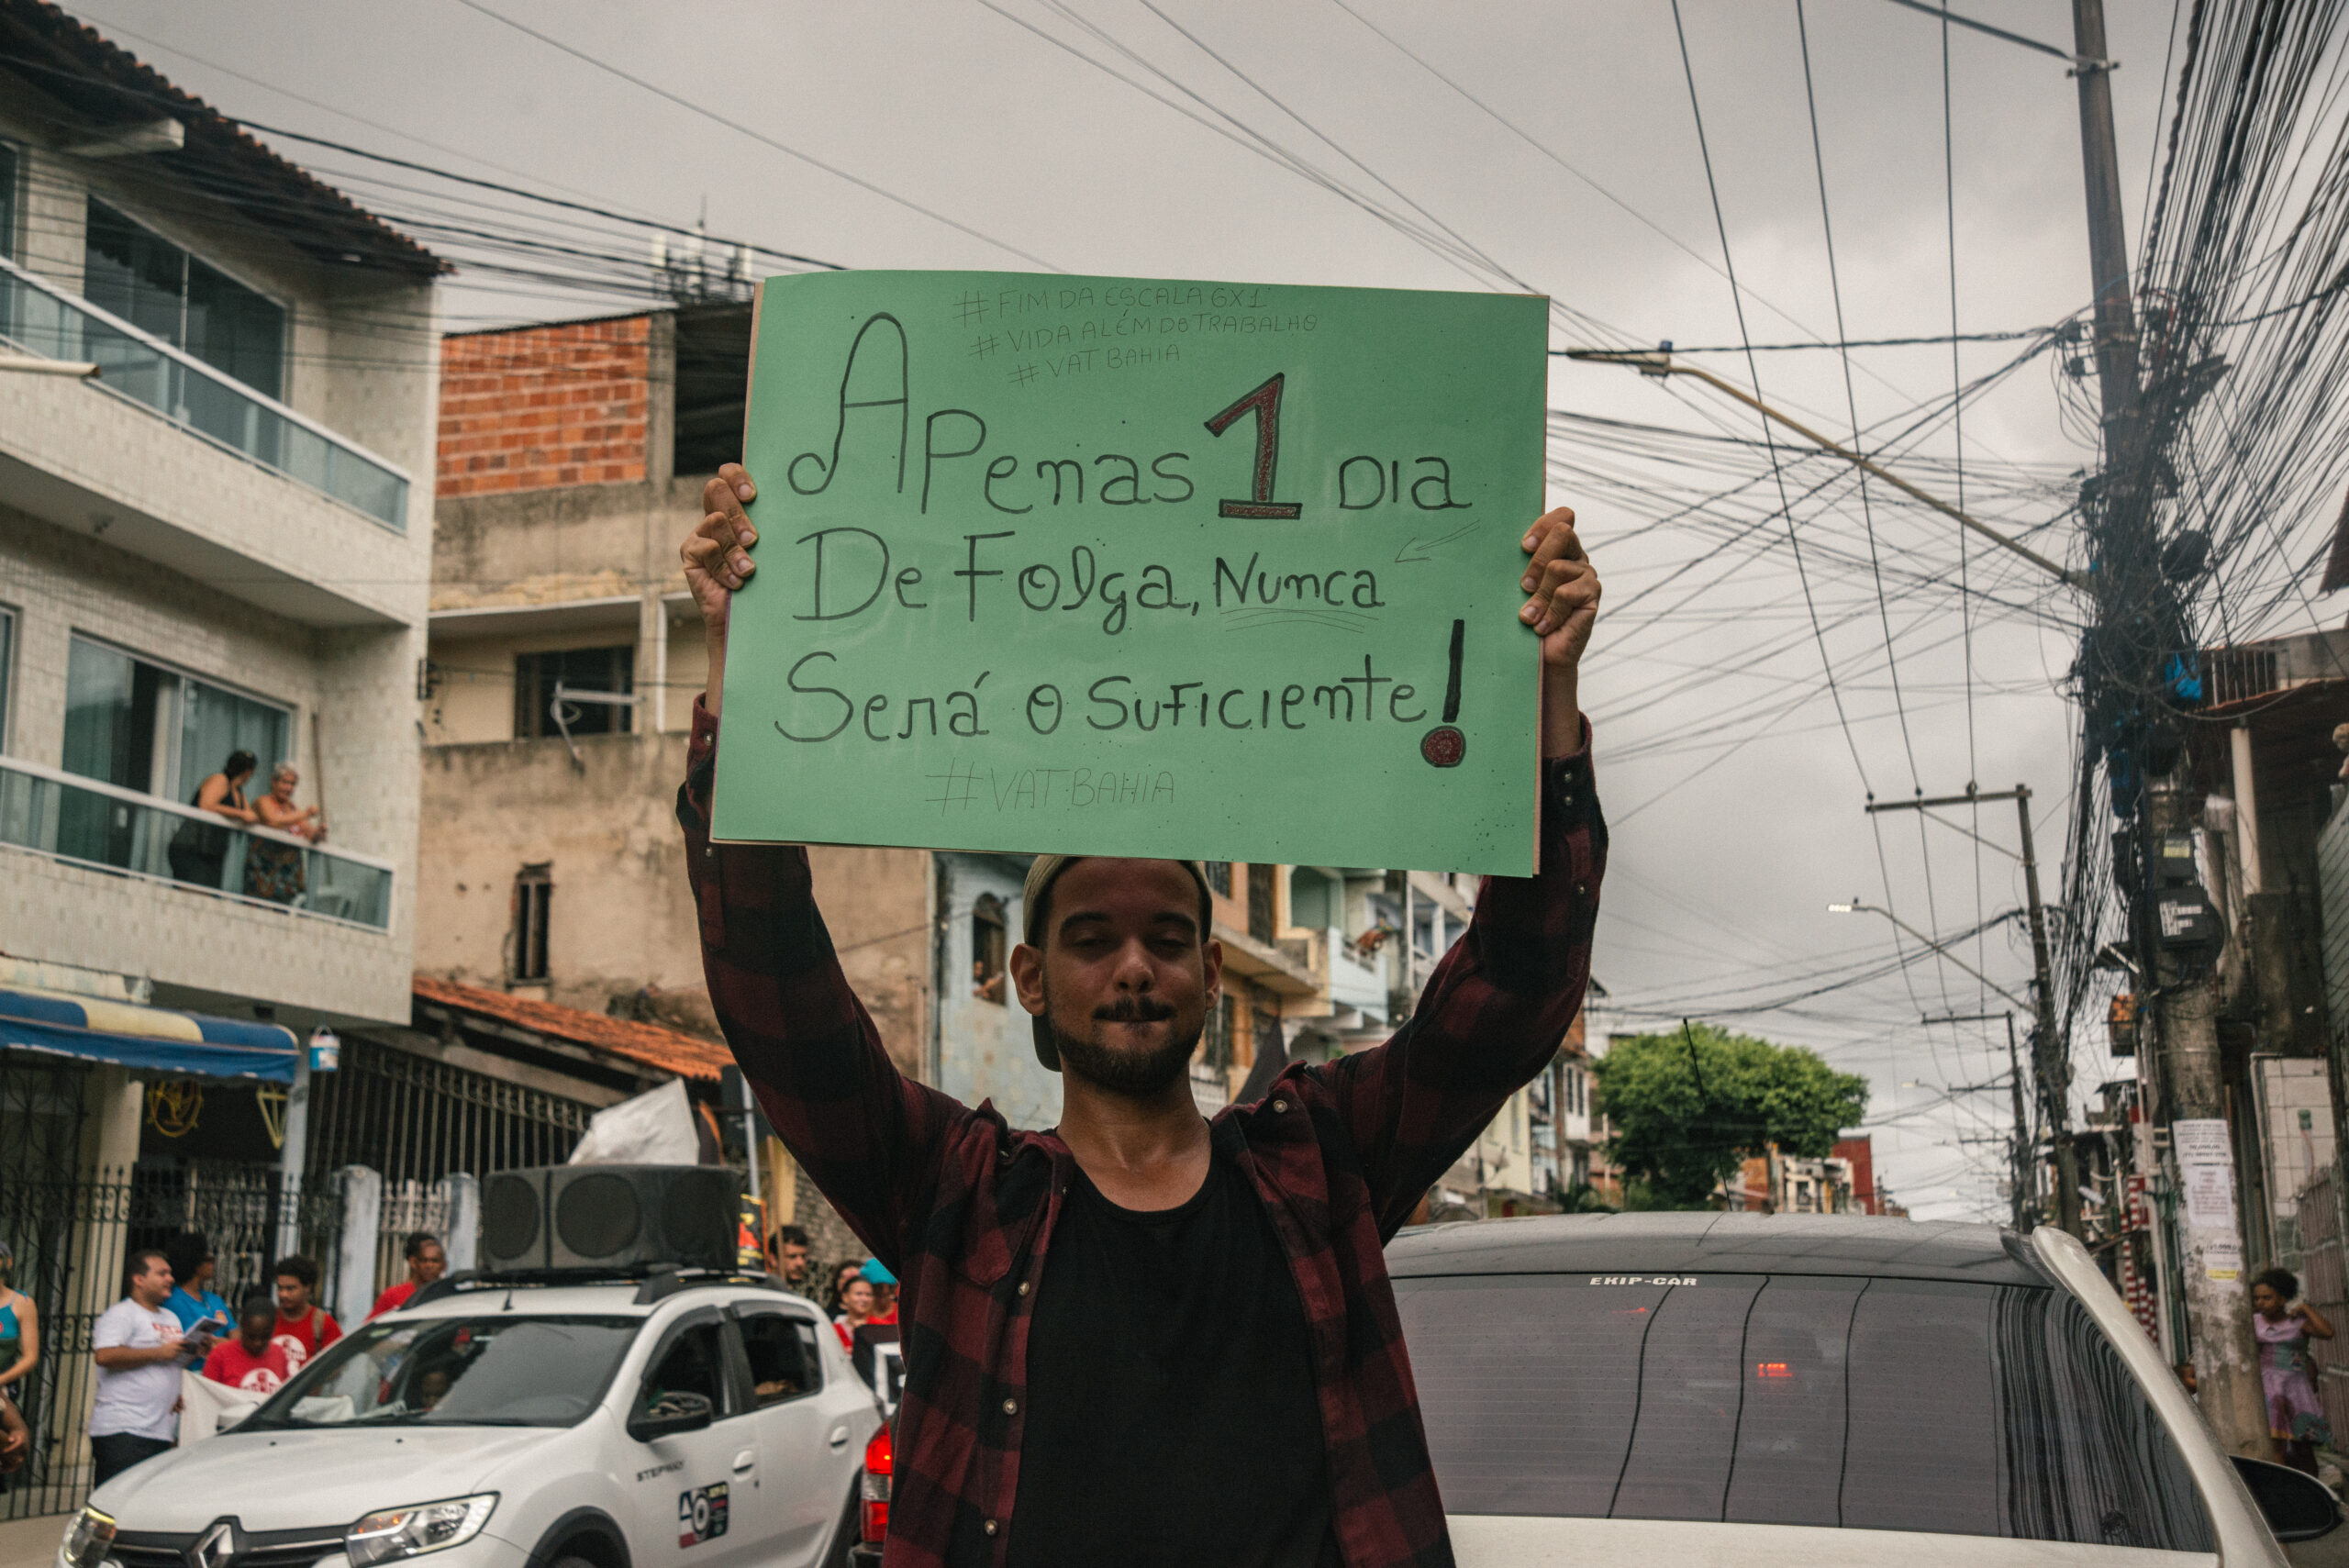 # FIM DA ESCALA 6X1
# VIDA ALÉM DO TRABALHO
# VAT BAHIA
Apenas 1 DIA
De Folga, Nunca
Será o Suficiente!
#VAT BAHIA
EKIP-CAR
STEPWAY